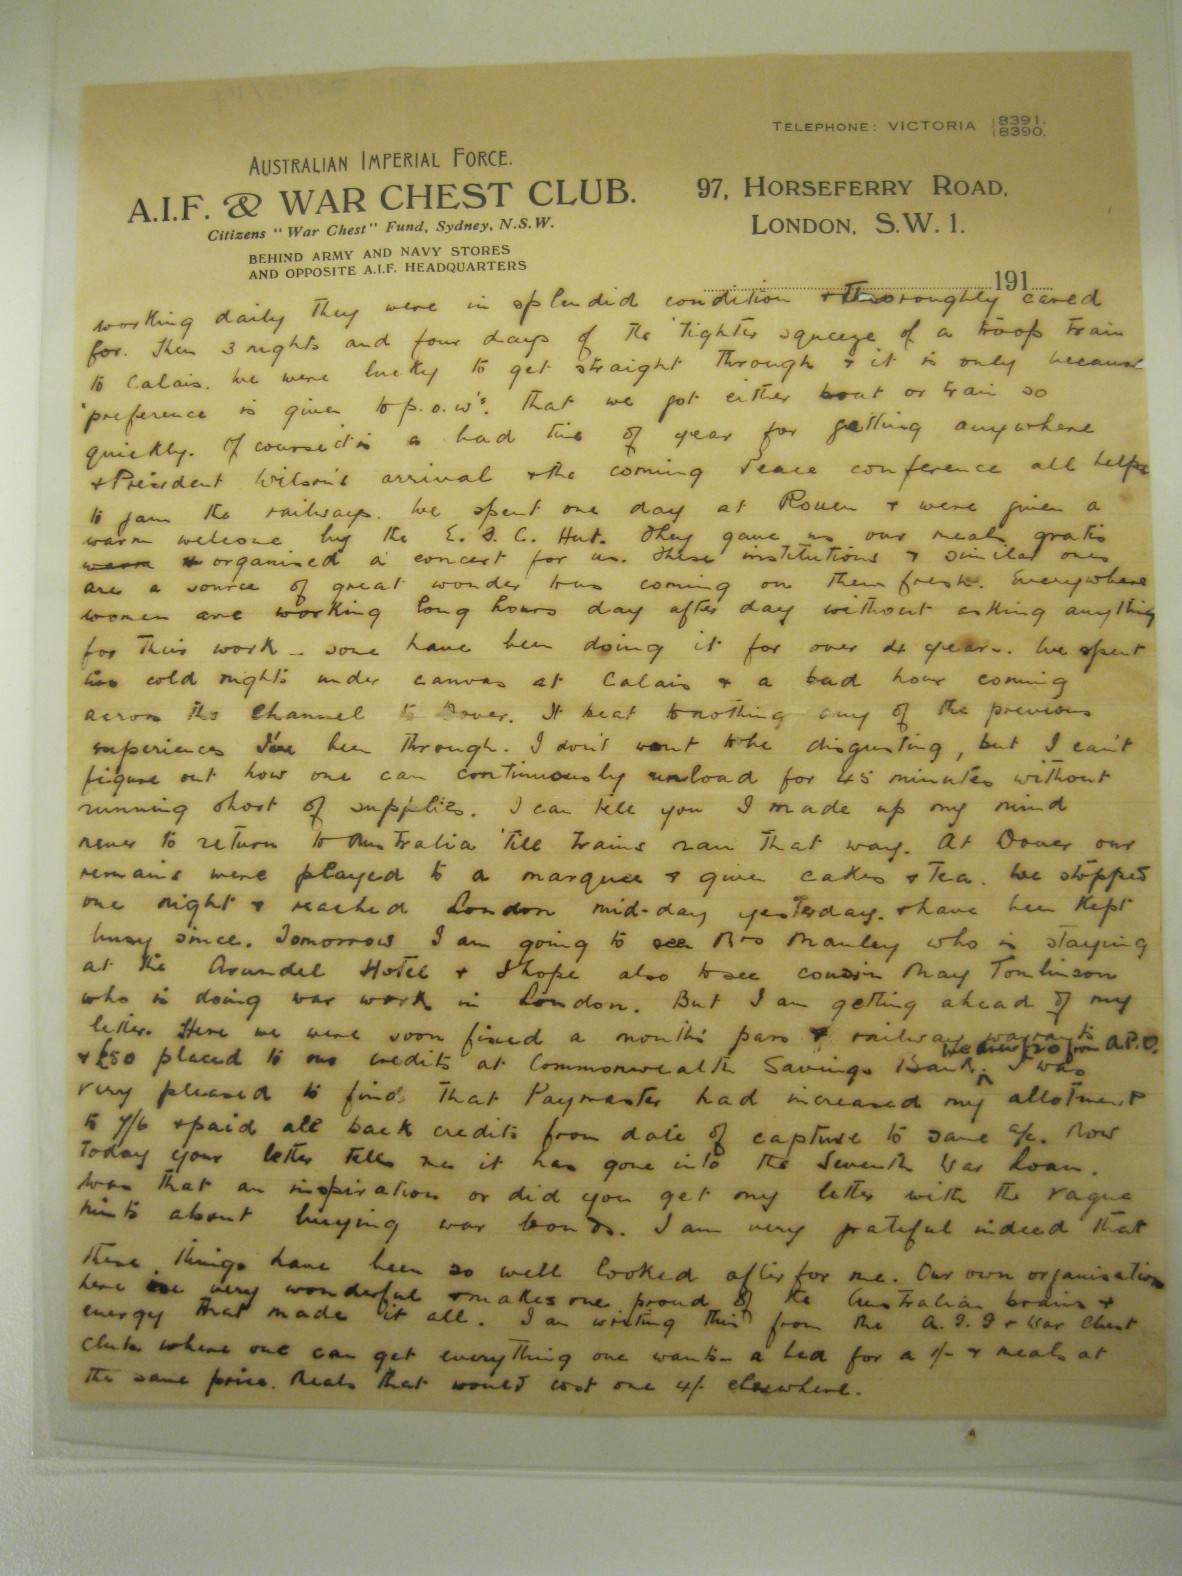 TELEPHONE: VICTORIA 8391. 8390.
AUSTRALIAN IMPERIAL FORCE.
A.I.F. & WAR CHEST CLUB.
Citizens "War Chest" Fund, Sydney, N.S.W.
BEHIND ARMY AND NAVY STORES
AND OPPOSITE A.I.F. HEADQUARTERS
97, HORSEFERRY ROAD,
LONDON, S.W. 1.
191
working daily they were in splendid condition & thoroughly cared
for. Then 3 nights and four days of the tighter squeeze of a troop train
to Calais. We were lucky to get straight through & it is only because
preference is given to p.o.w's. that we got either boat or train so
quickly. Of course it is a bad time of year for getting anywhere
& President Wilson's arrival & the coming Peace conference all helps
to jam the railways. We spent one day at Rouen & were given a
warm welcome by the E. F. C. Hut. They gave us our meals gratis
& organised a concert for us. These institutions & similar ones
are a source of great wonder to us coming on them fresh. Everywhere
women are working long hours day after day without asking anything
for their work - some have been doing it for over 4 years. We spent
two cold nights under canvas at Calais & a bad hour coming
across the Channel to Dover. It beat to nothing any of the previous
experiences I've been through. I don't want to be disgusting, but I can't
figure out how one can continuously unload for 45 minutes without
running short of supplies. I can tell you I made up my mind
never to return to Australia 'till trains ran that way. At Dover our
remains were played to a marquee & given cakes & tea. We stopped
one night & reached London mid-day yesterday. & have been kept
busy since. Tomorrow I am going to see Mrs Manley who is staying
at the Arundel Hotel & I hope also to see cousin May Tomlinson
who is doing war work in London. But I am getting ahead of my
letter. Here we were soon fixed a month's pass & railway warrants
& £50 placed to our credits at Commonwealth Savings Bank. We drew £20 from A.P.O. I was
very pleased to find that Paymaster had increased my allotment
to 7/6 & paid all back credits from date of capture to same a/c. Now
today your letter tells me it has gone into the Seventh War Loan.
Was that an inspiration or did you get my letter with the vague
hints about buying war bonds. I am very grateful indeed that
these things have been so well looked after for me. Our own organisation
here is very wonderful & makes one proud of the Australian brains &
energy that made it all. I am writing this from the A. I. F & War Chest
Club where one can get everything one wants - a bed for a 1/- & meals at
the same price. Meals that would cost one 4/- elsewhere.